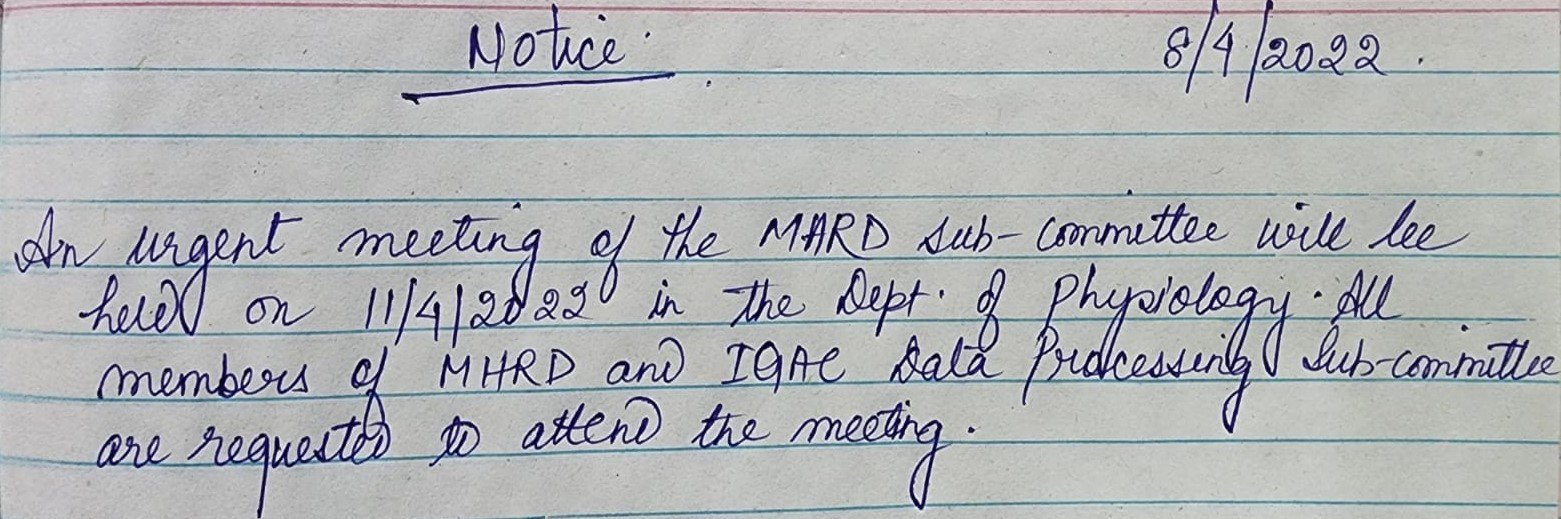 Notice
8/4/2022.
An urgent meeting of the MHRD sub-committee will be
held on 11/4/2022 in the Dept. of Physiology. All
members of MHRD and IQAC Data Processing Sub-committee
are requested to attend the meeting.